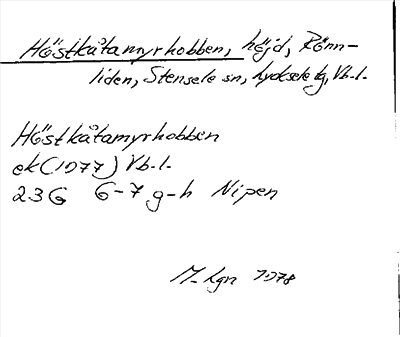 Höstkåtamyrhobben, höjd, Rönn-
liden, Stensele sn, Lycksele tg, Vb-l.
Höstkåtamyrhobben
ek (1977) Vb-l.
23G 6-7 g-h Nipen
M. Lgn 1978